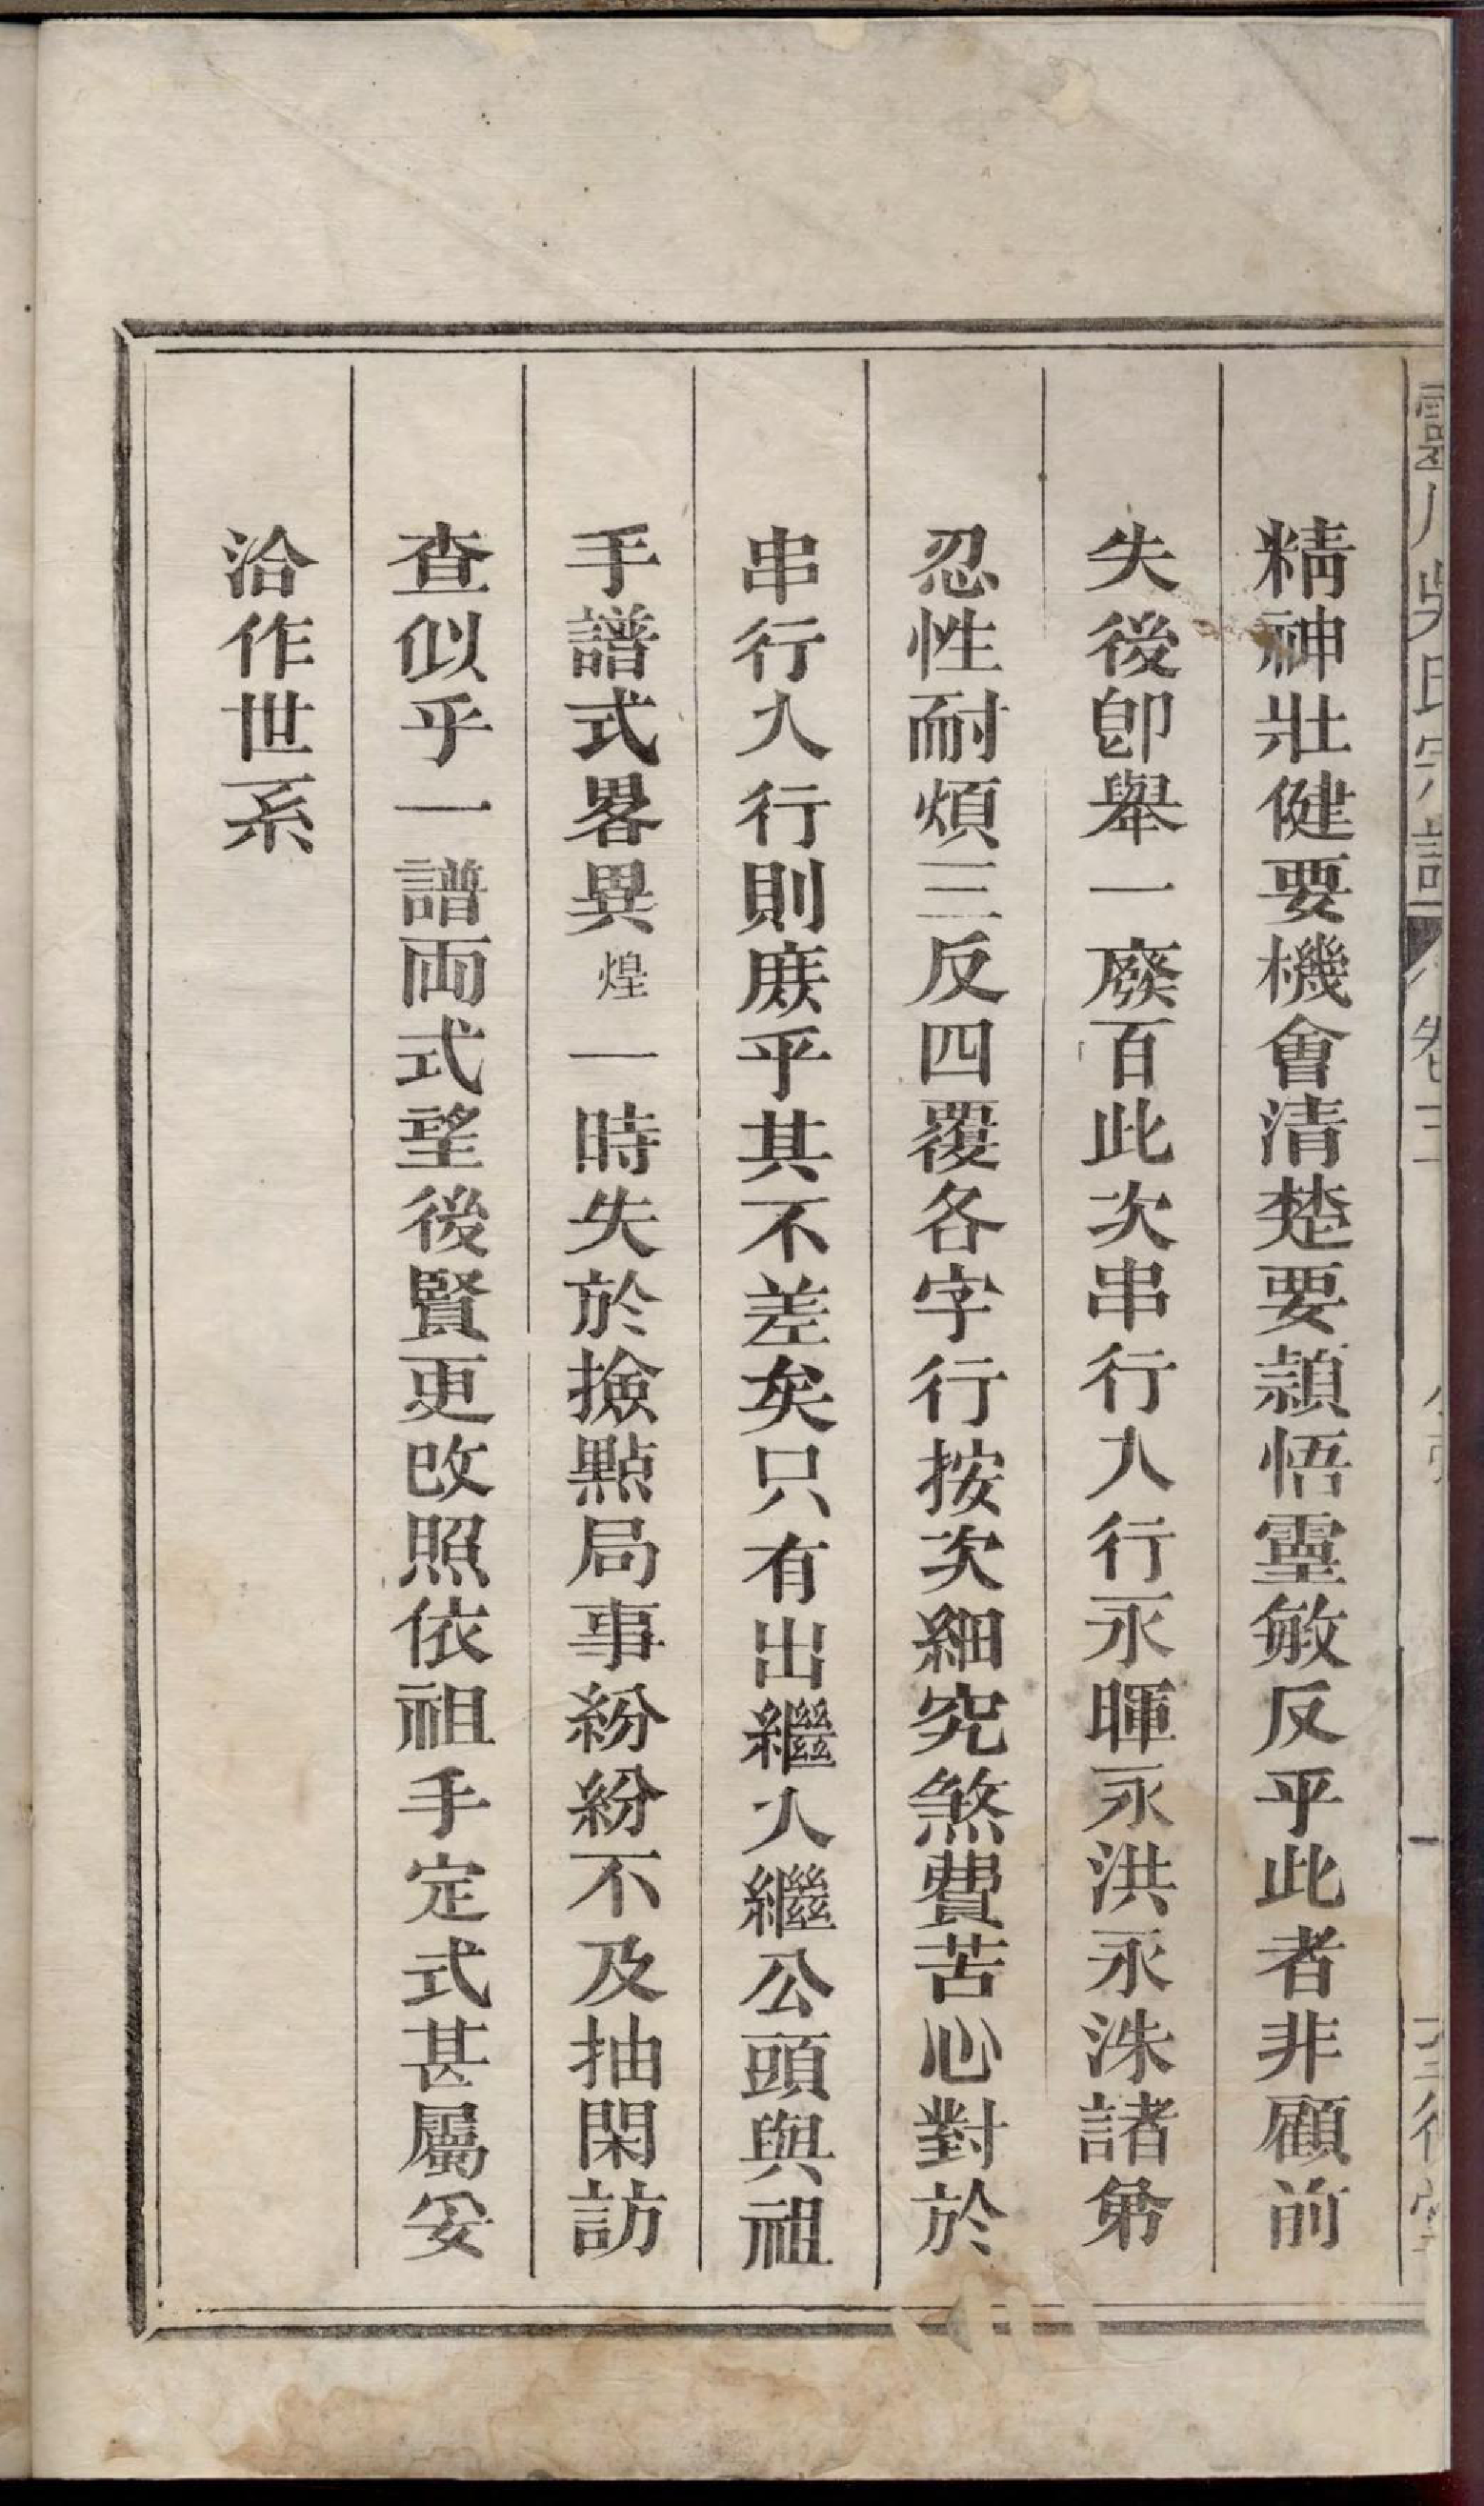 吳氏宗譜 卷 
精神壯健要機會清楚要頴悟靈敏反乎此者非顧前
失後卽舉一廢百此次串行人行永暉永洪永洙諸弟
忍性耐煩三反四覆各字行按次細究煞費苦心對於
串行人行則庶乎其不差矣只有出繼人繼公頭與祖
手譜式畧異煌一時失於撿點局事紛紛不及抽閑訪
查似乎一譜両式望後賢更改照依祖手定式甚屬妥
洽作世系